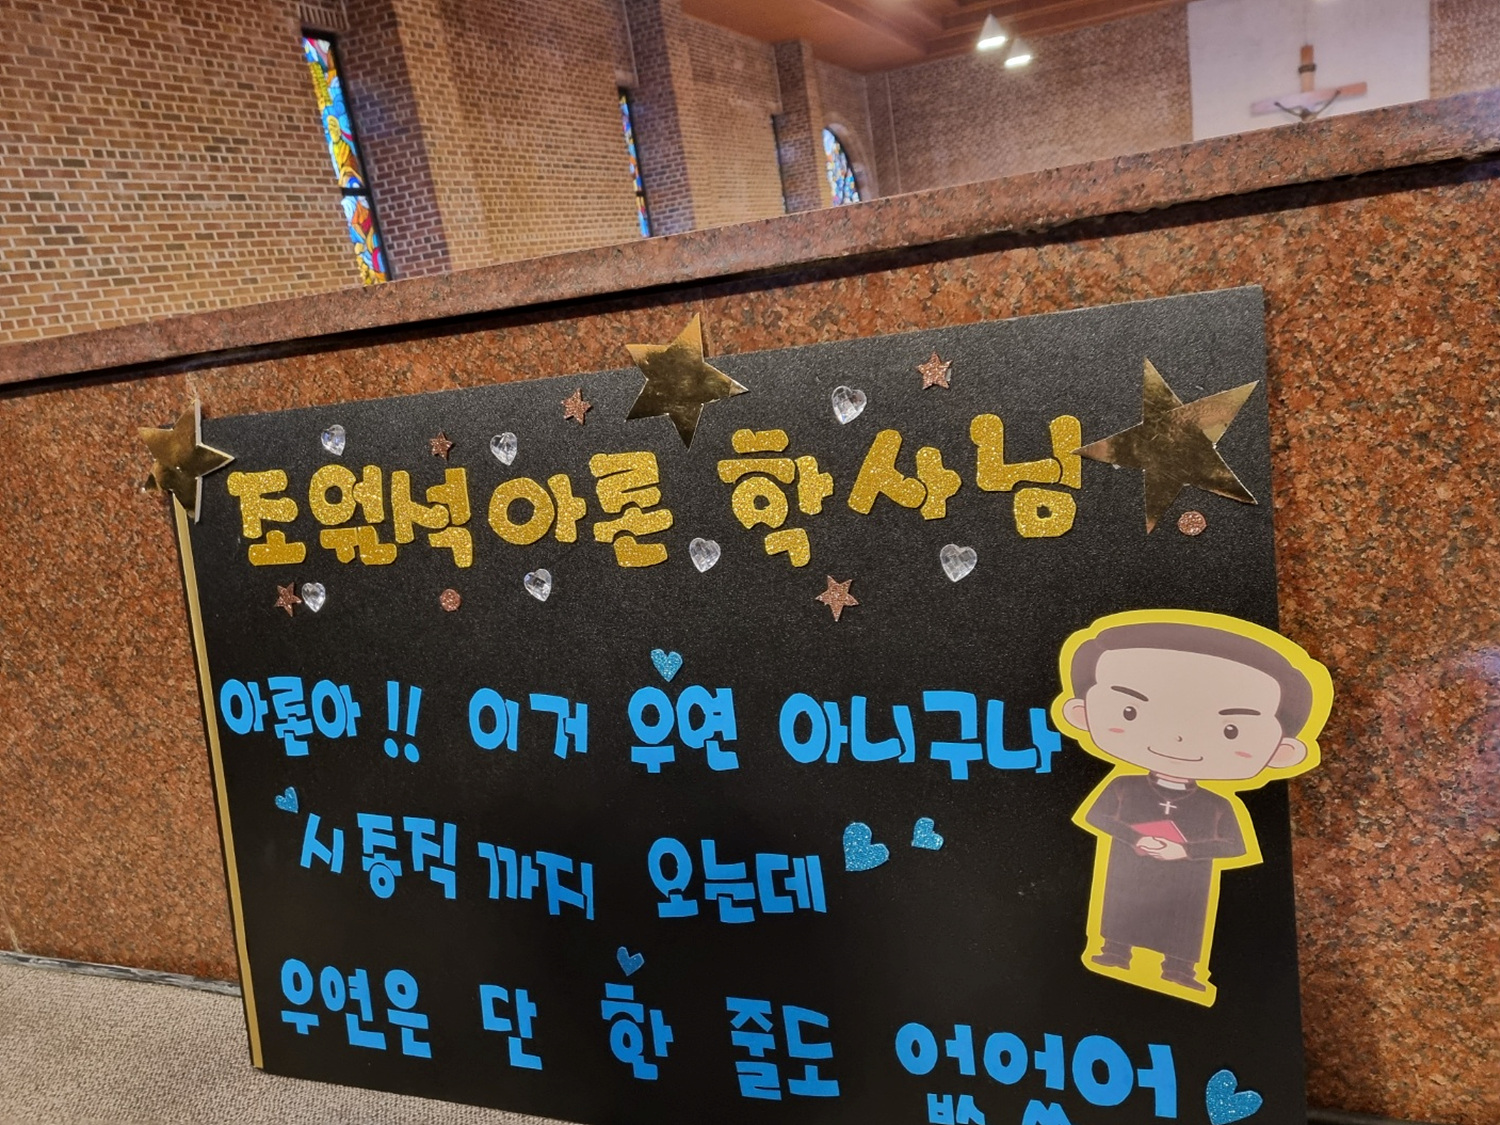 조원석 아론 학사님
아론아!! 이거 우연 아니구나
시종직까지 오는데
우연은 단 한 줄도 없었어